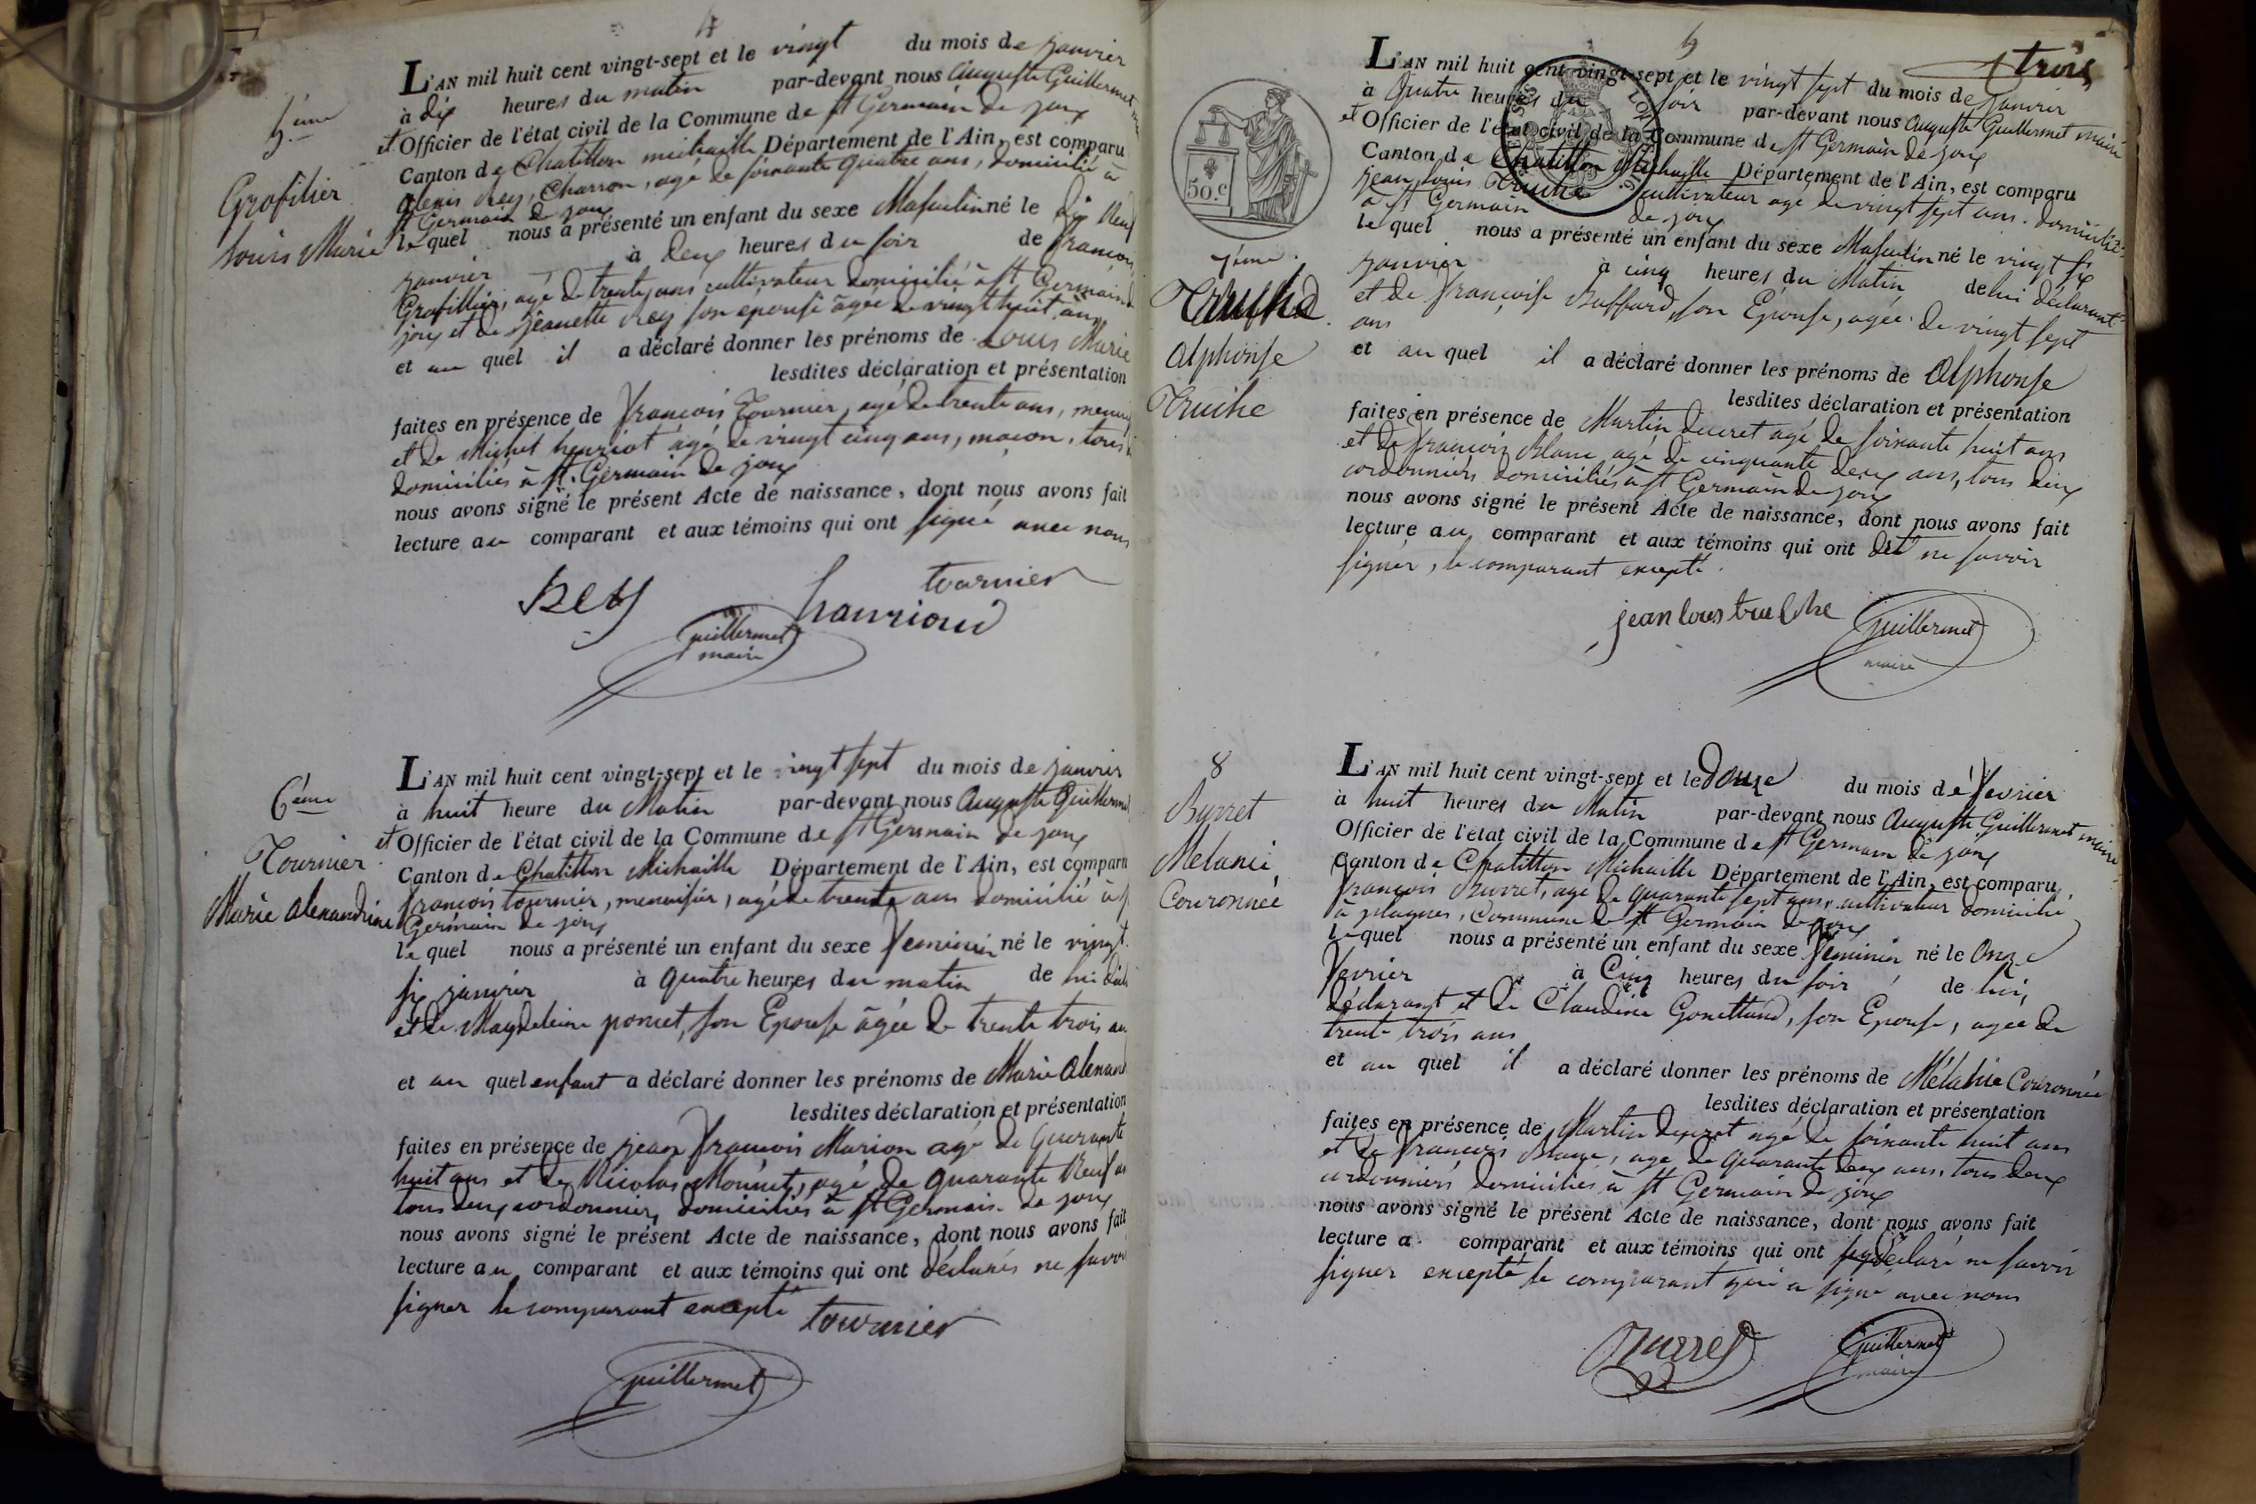 4
5.ème
Grofilier
Louis Marie
L'AN mil huit cent vingt-sept et le vingt du mois de janvier
à dix heures du matin par-devant nous Auguste Guillermet
et Officier de l'état civil de la Commune de St Germain de joux
Canton de Chatillon michaille Département de l'Ain, est comparu
alexis Rey, Charron, agé de soixante quatre ans, domicilié à
St Germain de joux
lequel nous a présenté un enfant du sexe Masculin né le dix Neuf
janvier à deux heures du soir de françois
Grofillier, agé de trente ans cultivateur domicilié à St Germain de
joux et de jeanette Rey son epouse âgée de vingt huit ans
et au quel il a déclaré donner les prénoms de Louis Marie
lesdites déclaration et présentation
faites en présence de françois Tournier, agé de trente ans, menuis
et de Michel henriot âgé de vingt cinq ans, maçon, tous
domiciliés à St. Germain de joux
nous avons signé le présent Acte de naissance, dont nous avons fait
lecture au comparant et aux témoins qui ont signé avec nous
Rey
tournier
hanrioud
Guillermet
maire
6ème
Tournier
Marie alexandrine
L'AN mil huit cent vingt-sept et le vingt sept du mois de janvier
à huit heure du Matin par-devant nous Auguste Guillermet
et Officier de l'état civil de la Commune de St Germain de joux
Canton de Chatillon Michaille Département de l'Ain, est comparu
françois tournier, menuisier, agé de trente ans domicilié à St
Germain de joux
lequel nous a présenté un enfant du sexe feminin né le vingt
six janvier à quatre heures du matin de lui décla
et de Magdeleine poncet, son Epouse âgée de trente trois an
et au quel enfant a déclaré donner les prénoms de Marie Alexand
lesdites déclaration et présentation
faites en présence de jean françois Marion agé de quarante
huit ans et de Nicolas Monnet, agé de quarante Neuf an
tous deux cordonniers domiciliés à St Germain de joux
nous avons signé le présent Acte de naissance, dont nous avons fait
lecture au comparant et aux témoins qui ont déclarés ne savoir
signer le comparant excepté tournier
Guillermet
5
trois
50.c
7ème.
Truche
Alphonse
Truche
L'AN mil huit cent vingt-sept et le vingt sept du mois de janvier
à Quatre heures du soir par-devant nous Auguste Guillermet maire
et Officier de l'état civil de la Commune de St Germain de joux
Canton de Chatillon Michaille Département de l'Ain, est comparu
jean louis Truche cultivateur agé de vingt sept ans. domicilié
à St Germain de joux
lequel nous a présenté un enfant du sexe Masculin né le vingt six
janvier à cinq heures du Matin de lui déclarant
et de françoise Buffard, son Epouse, agée de vingt sept
ans
et au quel il a déclaré donner les prénoms de Alphonse
lesdites déclaration et présentation
faites en présence de Martin ducret agé de soixante huit ans
et de françois Blanc agé de cinquante deux ans, tous deux
cordonniers domiciliés à St Germain de joux
nous avons signé le présent Acte de naissance, dont nous avons fait
lecture au comparant et aux témoins qui ont dit ne savoir
signer, le comparant excepté.
jean louis truche
Guillermet
maire
8
Burret
Melanie
Couronnée
L'AN mil huit cent vingt-sept et le Douze du mois de fevrier
à huit heures du Matin par-devant nous Auguste Guillermet maire
Officier de l'état civil de la Commune de St Germain de joux
Canton de Chatillon Michaille Département de l'Ain, est comparu
françois Burret, agé de quarante sept ans, cultivateur domicilié
à plagnes, Commune de St Germain de joux
lequel nous a présenté un enfant du sexe feminin né le Onze
fevrier à Cinq heures du soir de lui,
déclarant et de Claudine Gonettand, son Epouse, agée de
trente trois ans
et au quel il a déclaré donner les prénoms de Mélanie Couronnée
lesdites déclaration et présentation
faites en présence de Martin ducret agé de soixante huit ans
et de françois Blanc, agé de quarante deux ans, tous deux
cordonniers domiciliés à St Germain de joux
nous avons signé le présent Acte de naissance, dont nous avons fait
lecture a comparant et aux témoins qui ont déclaré ne savoir
signer excepté le comparant qui a signé avec nous
Burret
Guillermet
maire